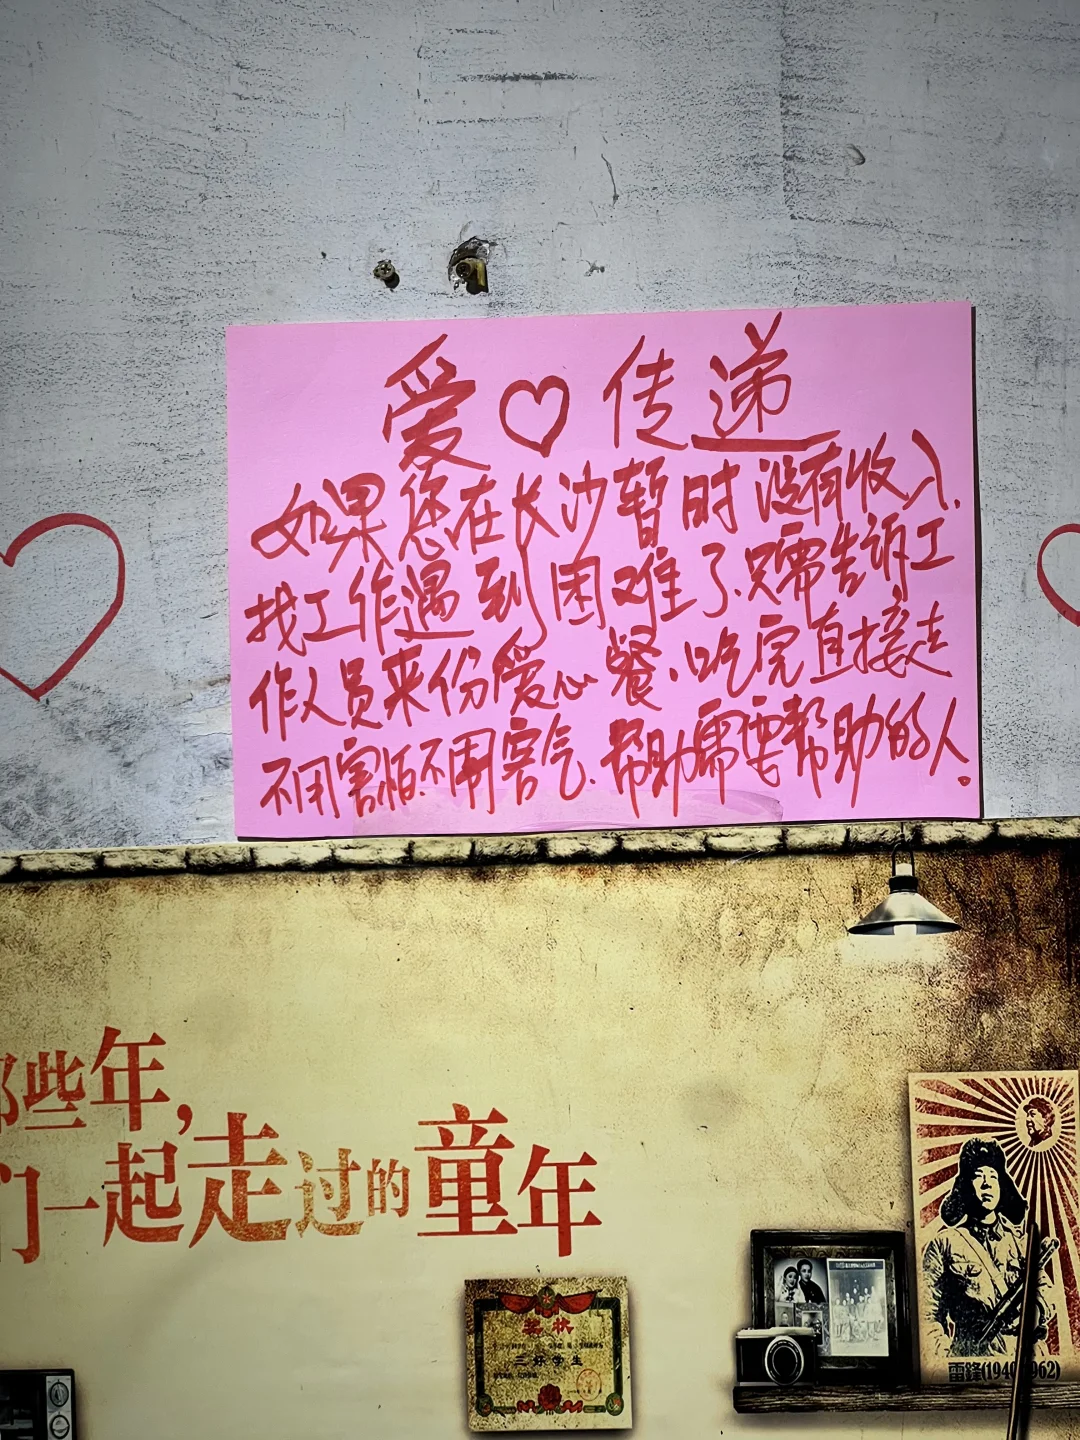 爱♡传递
如果您在长沙暂时没有收入.
找工作遇到困难了.只需告诉工
作人员来份爱心餐.吃完直接走
不用害怕.不用客气.帮助需要帮助的人。
那些年,
们一起走过的童年
奖状
三好学生
雷鋒(1940-1962)